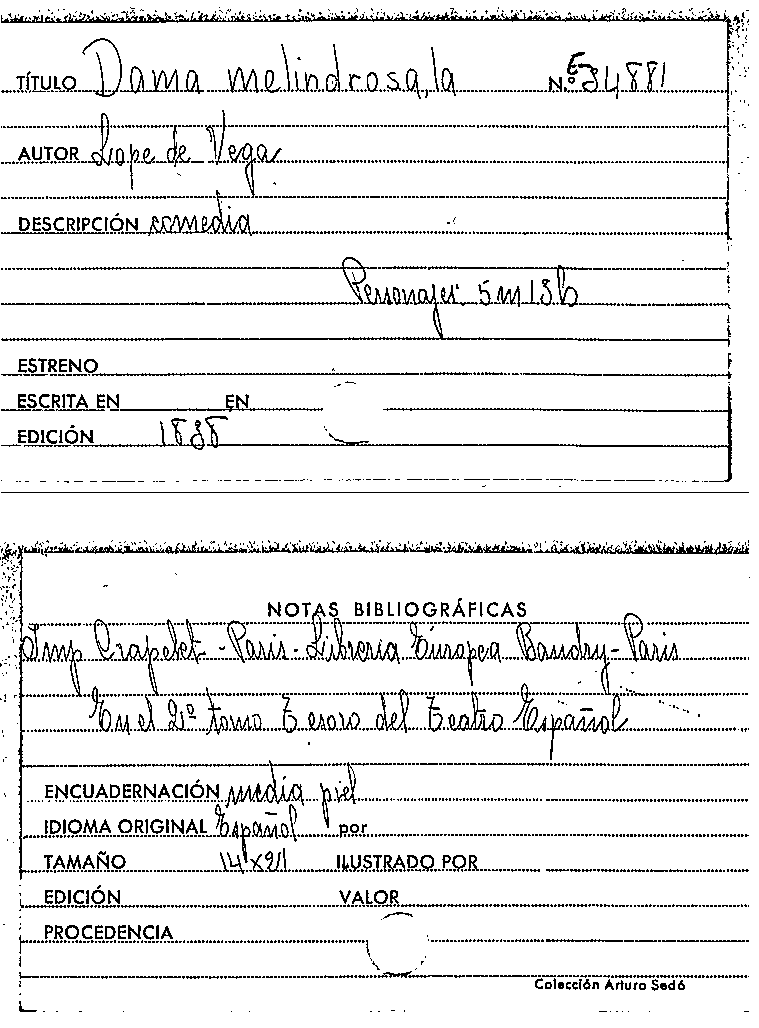 TÍTULO Dama melindrosa, la N.º E-34881
AUTOR Lope de Vega
DESCRIPCIÓN comedia
Personajes: 5 m 13 h
ESTRENO
ESCRITA EN EN
EDICIÓN 1838
NOTAS BIBLIOGRÁFICAS
Imp Crapelet - Paris - Libreria Europea Baudry - Paris
En el 2º tomo Tesoro del Teatro Español
ENCUADERNACIÓN media piel
IDIOMA ORIGINAL Español por
TAMAÑO 14 x 21 ILUSTRADO POR
EDICIÓN VALOR
PROCEDENCIA
Colección Arturo Sedó